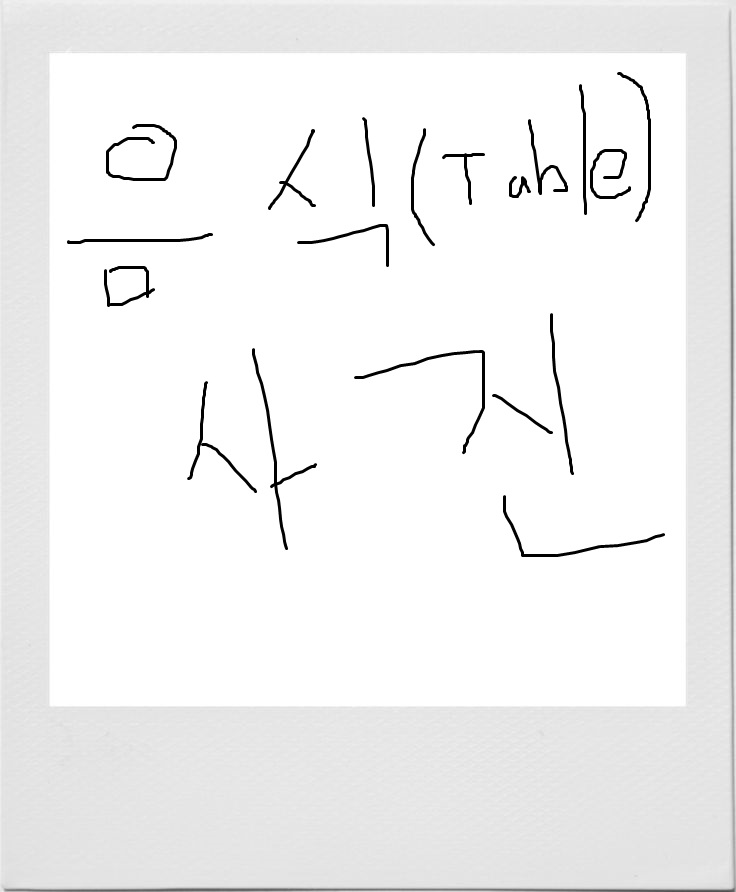 음식(Table)
사진